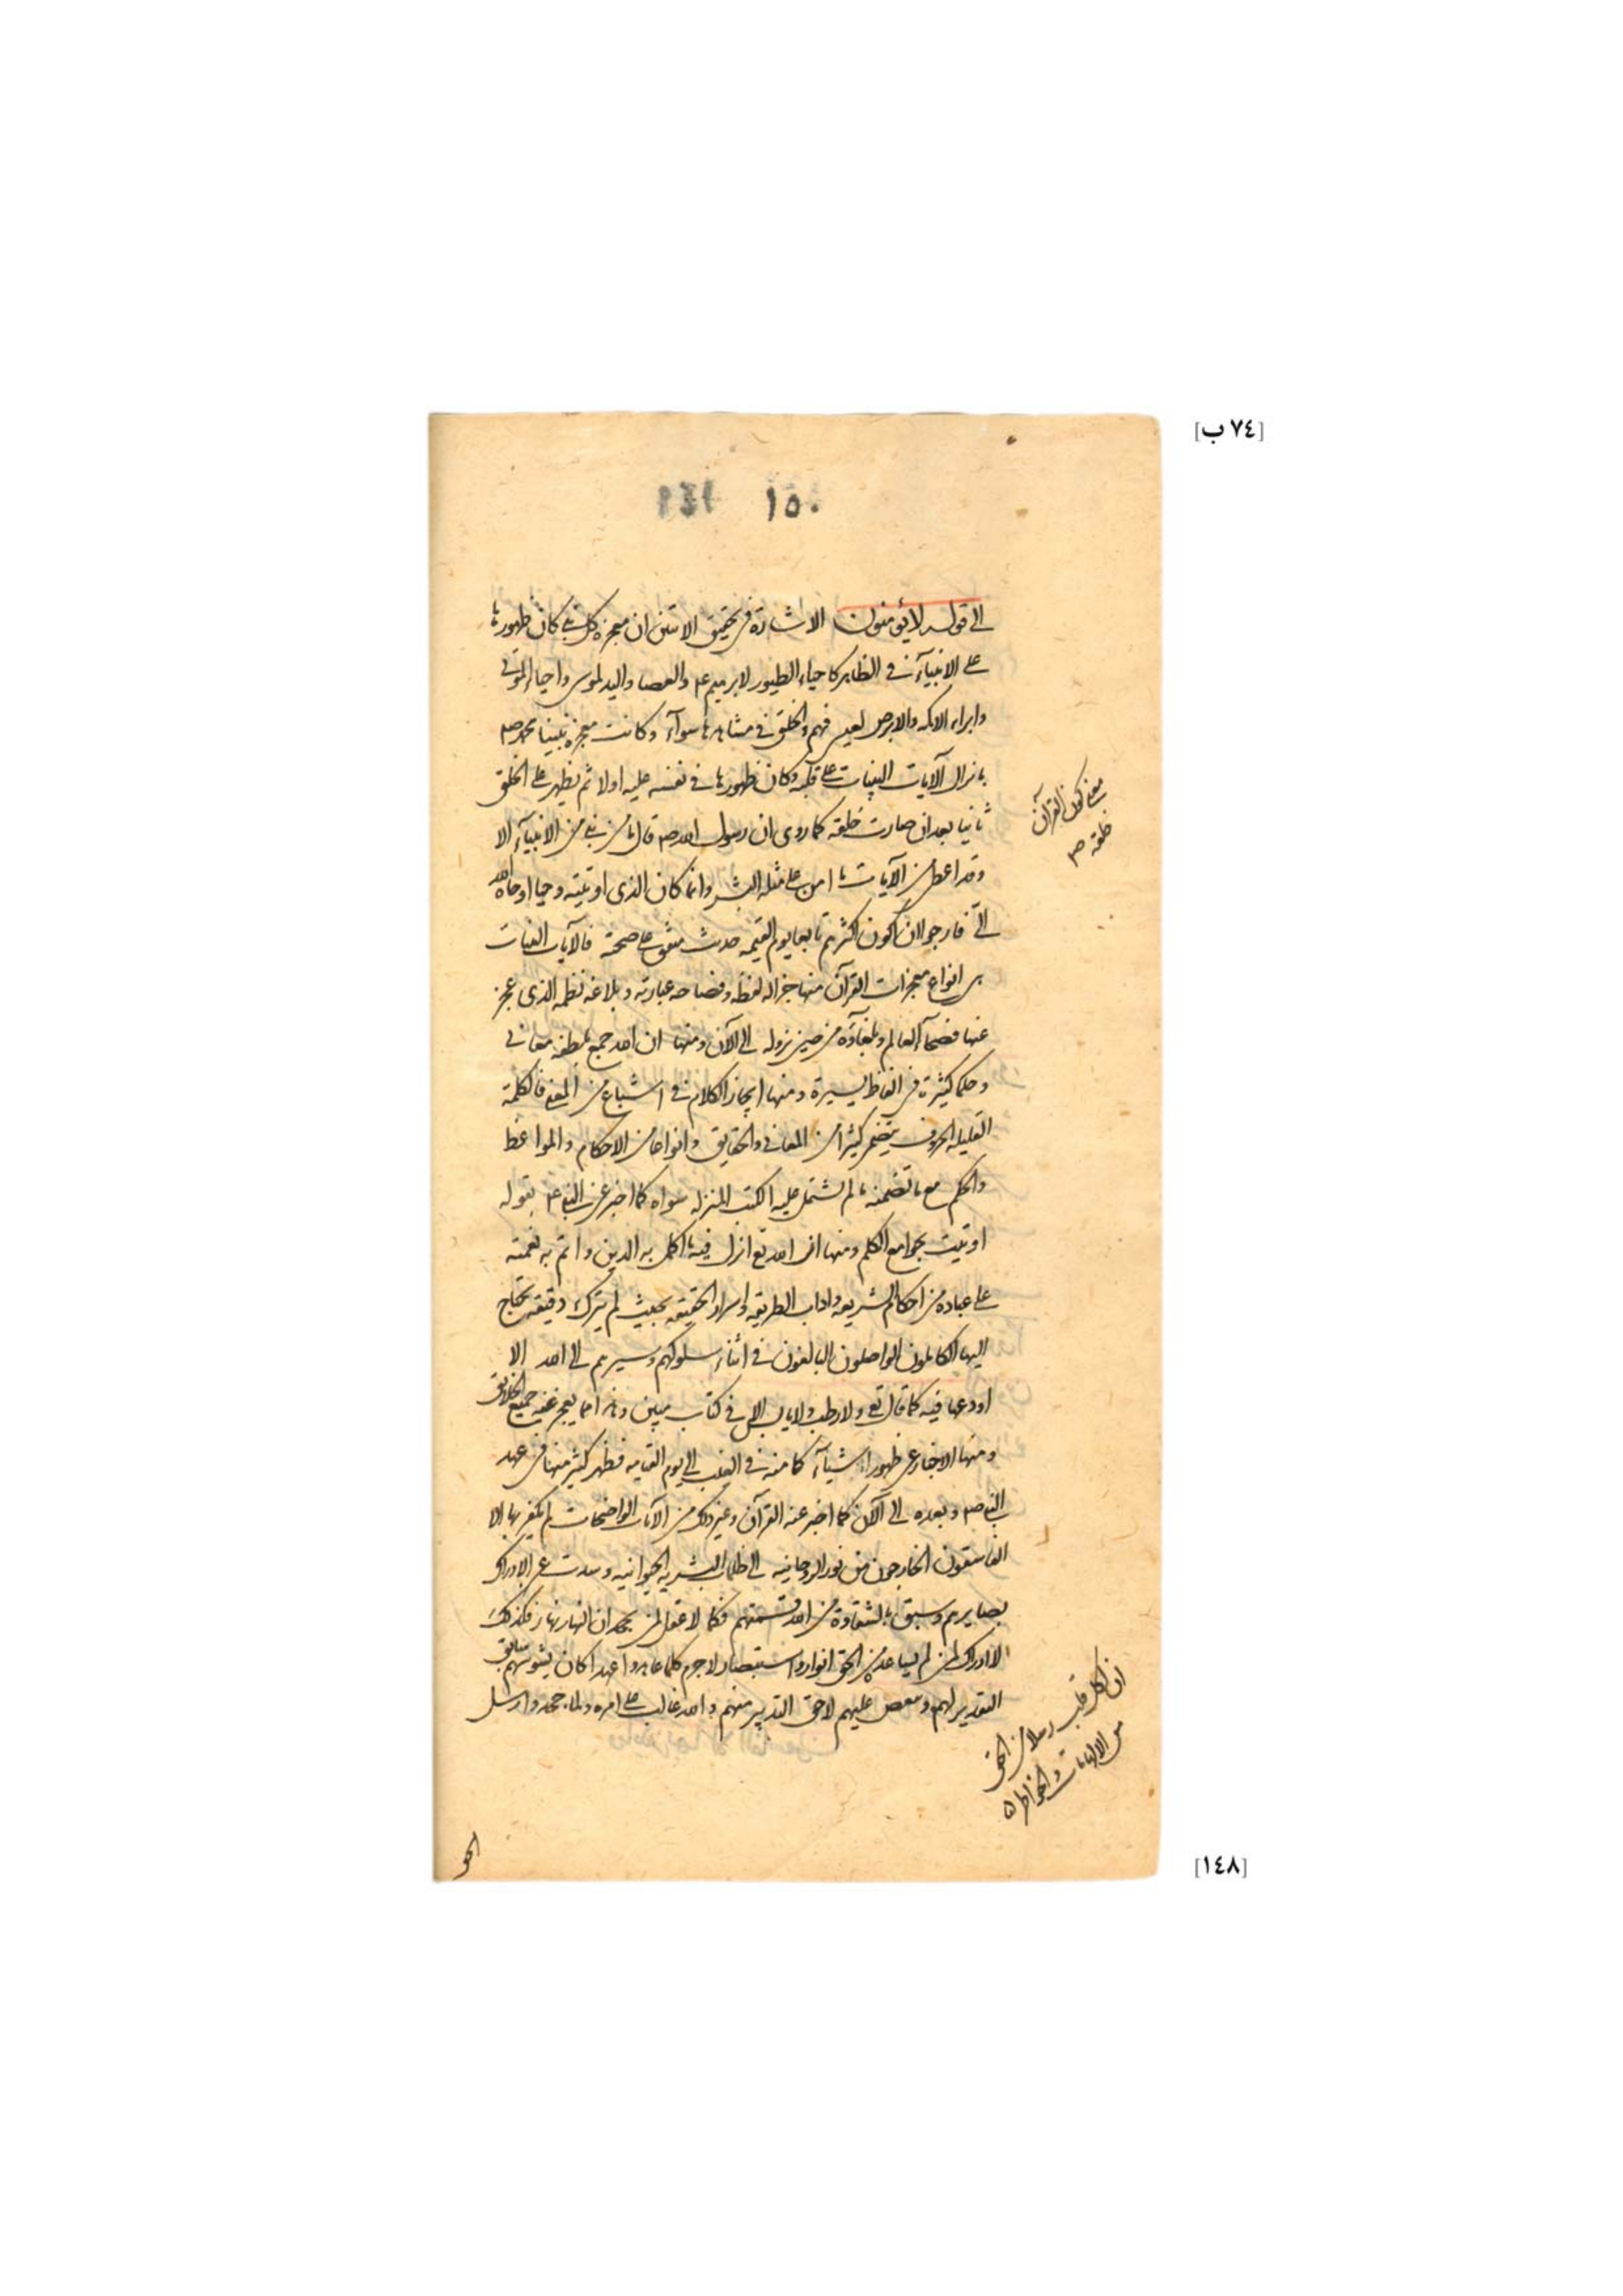 [٧٤ ب]
١٥٠ ١٤٩
الى قوله لا يؤمنون الاشارة فى تحقيق الايتين ان معجزة كل نبى كان ظهورها
على الانبيآء فى الظاهر كاحياء الطيور لابرهيم ع م والعصا واليد لموسى واحياء الموتى
وابراء الاكمه والابرص لعيسى فهم والخلق فى مشاهدتها سوآء وكانت معجزة نبينا محمد صم
بانزال الآيات البينات على قلبه وكان ظهورها فى نفسه عليه اولا ثم يظهر على الخلق
ثانيا بعد ان صارت خلقه كما روى ان رسول الله صم قال ما من نبى من الانبيآء الا
وقد اعطى من الآيات ما امن على مثله البشر وانما كان الذى اوتيته وحيا اوحاه الله
الىّ فارجو ان اكون اكثرهم تابعا يوم القيمه حديث متفق على صحته فالآيات البينات
هى انواع معجزات القرآن منها جزالة لفظه وفصاحة عبارته وبلاغة نظمه الذى عجز
عنها فصحآء العالم وبلغآؤه من حين نزوله الى الآن ومنها ان الله جمع بلطفه معانى
وحكما كثيرة فى الفاظ يسيرة ومنها ايجاز الكلام فى اشباع من المعنى فالكلمة
القليلة الحروف يتضمن كثيرا من المعانى والحقايق وانواعا من الاحكام والمواعظ
والحكم مع ما تضمنه ما لم يشتمل عليه الكتب المنزله سواه كما اخبر عن النبى ع م بقوله
اوتيت بجوامع الكلم ومنها ان الله تع انزل فيه ما اكمل به الدين واتم به نعمته
على عباده من احكام الشريعه واداب الطريقه واسرار الحقيقه بحيث لم يترك دقيقه يحتاج
اليها الكاملون الواصلون البالغون فى أثناء سلوكهم وسيرهم الى الله الا
اودعها فيه كما قال تع ولا رطب ولا يابس الا فى كتاب مبين وهذا مما يعجز عنه جميع الخلايق
ومنها الاخبار عن ظهور اشيآء كامنه فى الغيب الى يوم القيامه فظهر كثير منها فى عهد
النبى صم وبعده الى الآن كما اخبر عنه القرآن وغير ذلك من الآيات الواضحات لم يكفر بها الا
الفاسقون الخارجون من نور الروحانيه الى ظلمات البشريه الحيوانيه وسدت عن الادراك
بصايرهم وسبق بالشقاوة من الله قسمتهم فكما لا عقل لمن يجحد ان النهار نهار فكذلك
لا ادراك لمن لم يساعده من الحق انوار واستبصار لا جرم كلما عاهدوا عهدا كان يشوشهم سابق
التقدير لهم وينقض عليهم لاحق التدبير منهم والله غالب على امره ولما جحدوا رسل
معنى كون القرآن
خلقه صم
ان لكل قلب رسلا من الحق
من الالهامات والخواطر
الحق
[١٤٨]